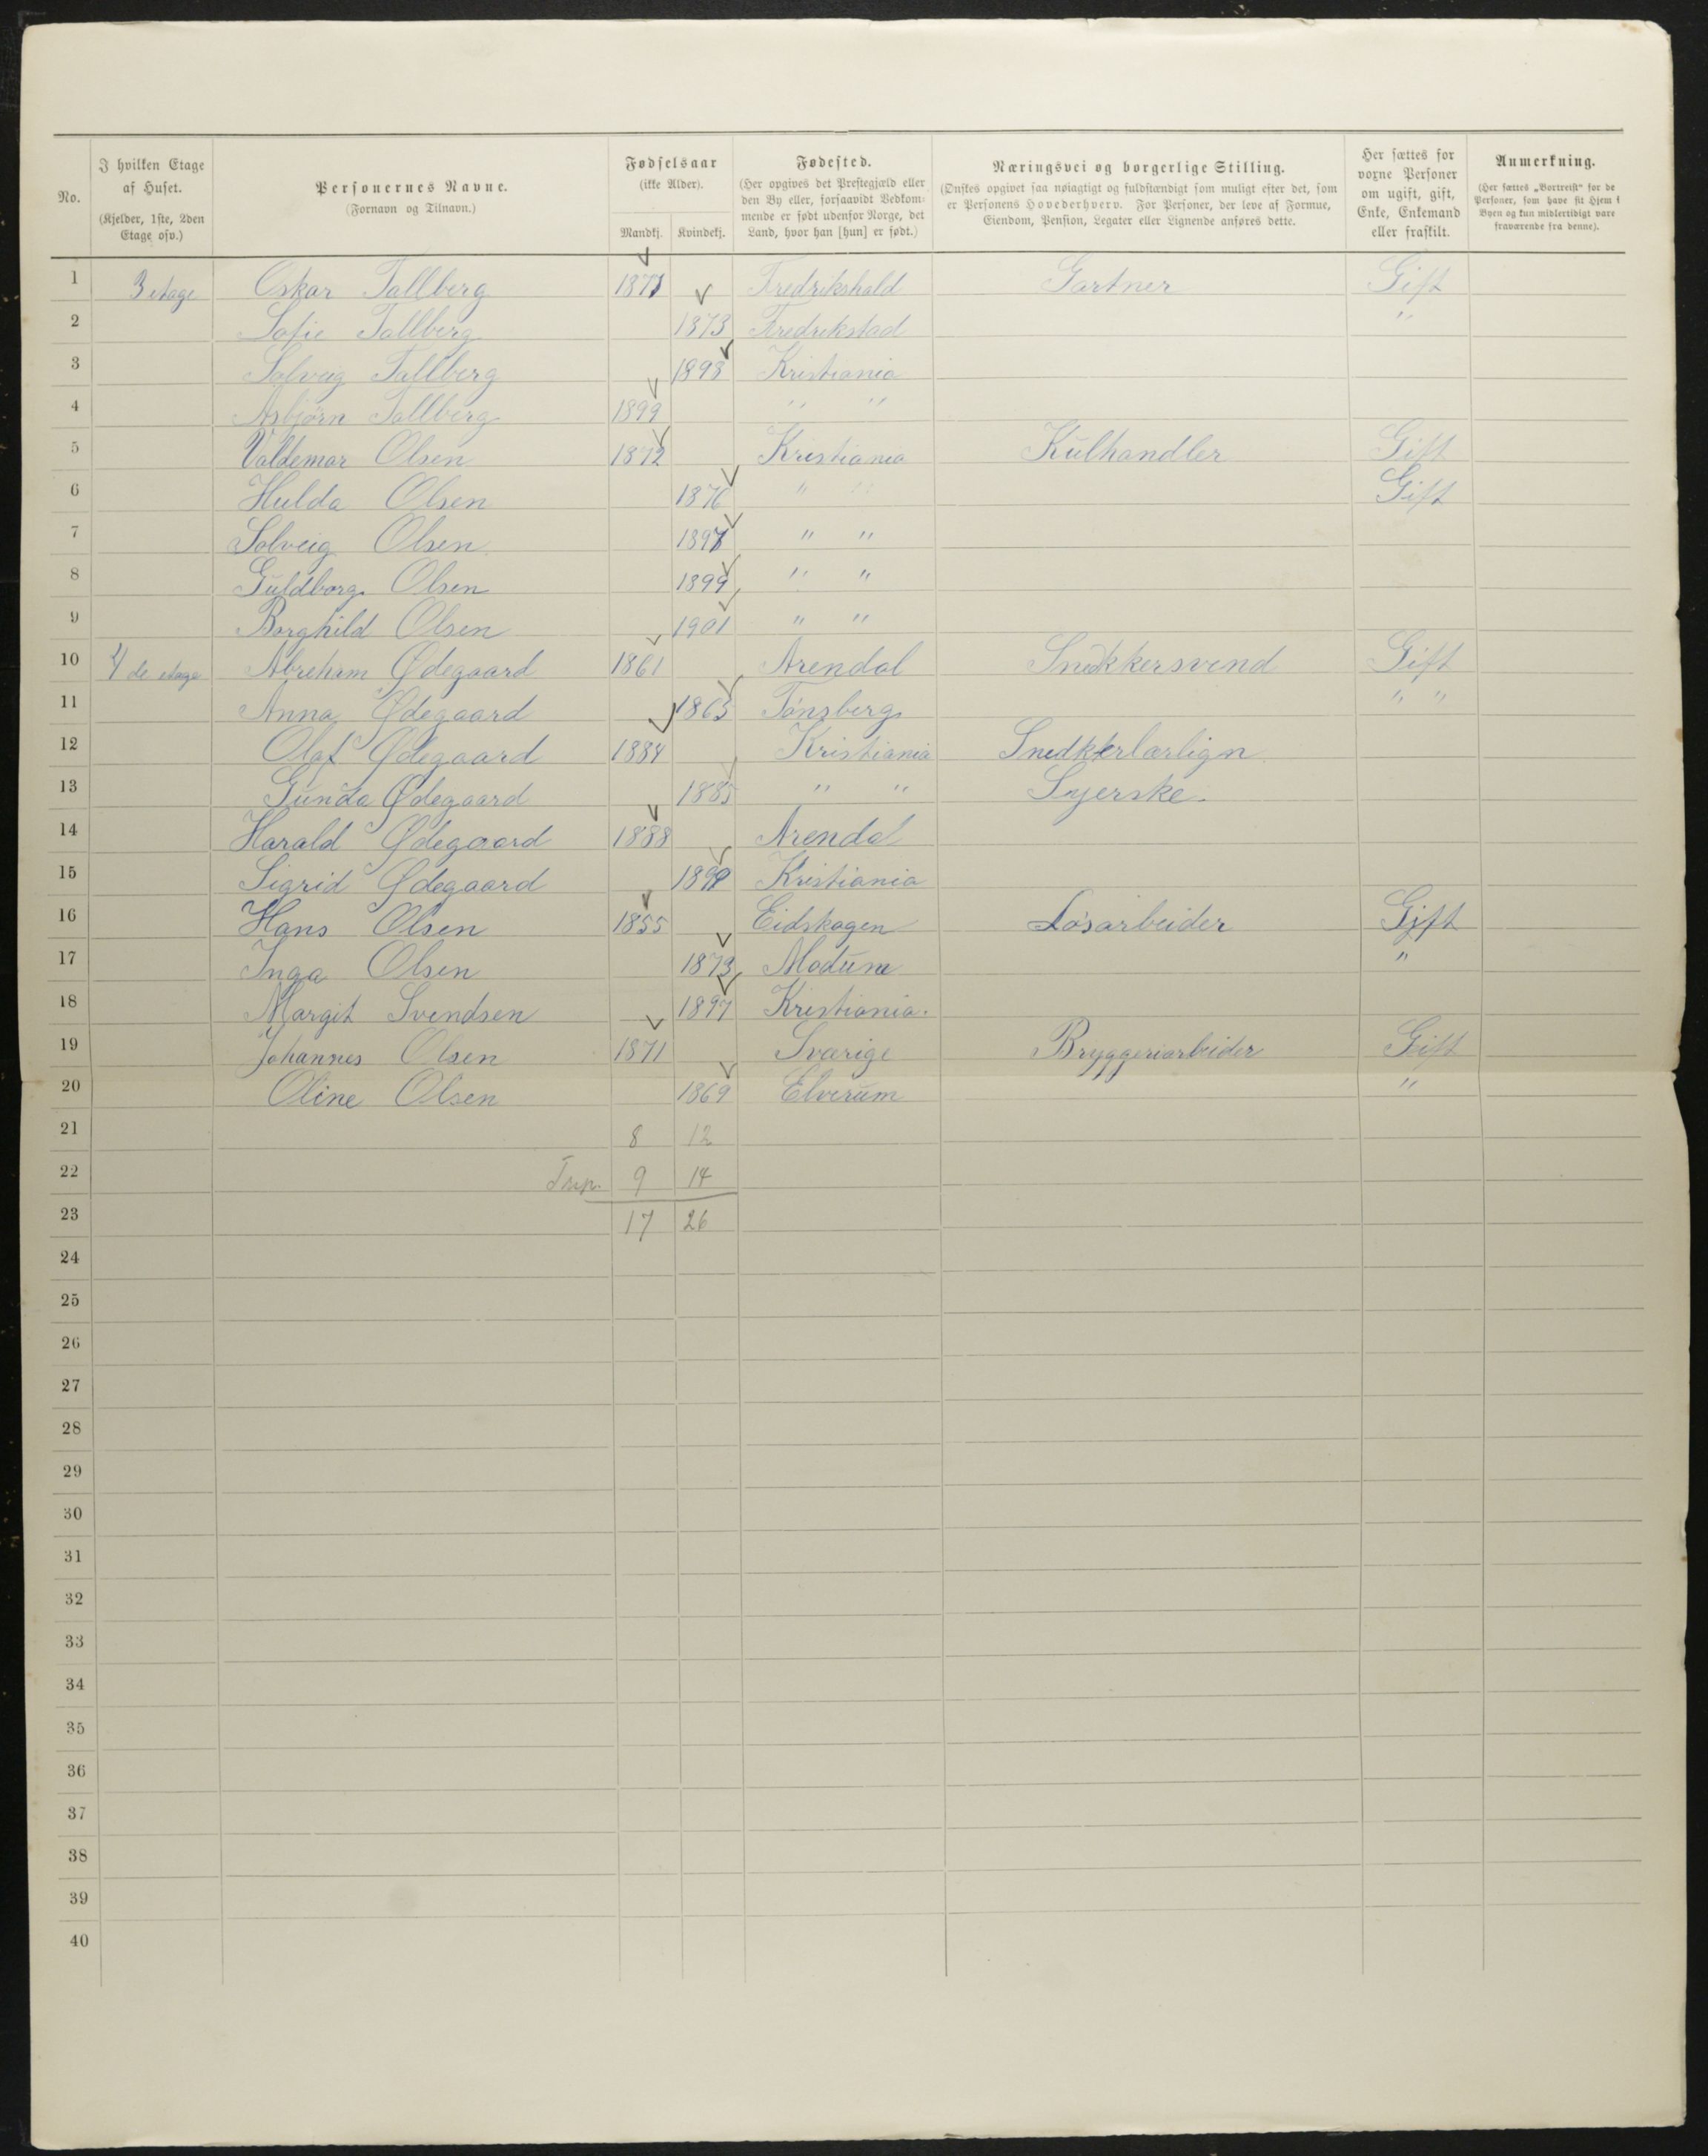 No.
I hvilken Etage af Huset. (Kjelder, 1ste, 2den Etage osv.)
Personernes Navne. (Fornavn og Tilnavn.)
Fødselsaar (ikke Alder). Mandkj. Kvindekj.
Fødested. (Her opgives det Prestegjæld eller den By eller, forsaavidt Vedkommende er født udenfor Norge, det Land, hvor han [hun] er født.)
Næringsvei og borgerlige Stilling. (Ønskes opgivet saa nøiagtigt og fuldstændigt som muligt efter det, som er Personens Hovederhverv. For Personer, der leve af Formue, Eiendom, Pension, Legater eller Lignende anføres dette.
Her sættes for voxne Personer om ugift, gift, Enke, Enkemand eller fraskilt.
Anmerkning. (Her sættes „Bortreist“ for de Personer, som have sit Hjem i Byen og kun midlertidigt vare fraværende fra denne).
1 3 etage Oskar Tallberg 1871 Fredrikshald Gartner Gift
2 Sofie Tallberg 1873 Fredrekstad "
3 Solveig Tallberg 1898 Kristiania
4 Asbjörn Tallberg 1899 " "
5 Valdemar Olsen 1872 Kristiania Kulhandler Gift
6 Hulda Olsen 1876 " " Gift
7 Solveig Olsen 1897 " "
8 Guldborg Olsen 1899 " "
9 Borghild Olsen 1901 " "
10 4 de etage Abreham Ødegaard 1861 Arendal Snedkkersvend Gift
11 Anna Ødegaard 1863 Tönsberg " "
12 Olaf Ødegaard 1884 Kristiania Snedkkerlærlign
13 Gunda Ødegaard 1885 " " Syerske.
14 Harald Ødegaard 1888 Arendal
15 Sigrid Ødegaard 1899 Kristiania
16 Hans Olsen 1855 Eidskogen Lösarbeider Gift
17 Inga Olsen 1873 Modum "
18 Margit Svendsen 1897 Kristiania.
19 Johannes Olsen 1871 Sværige Bryggeriarbeider Gift
20 Oline Olsen 1869 Elverum "
21 8 12
22 Trsp. 9 14
23 17 26
24
25
26
27
28
29
30
31
32
33
34
35
36
37
38
39
40